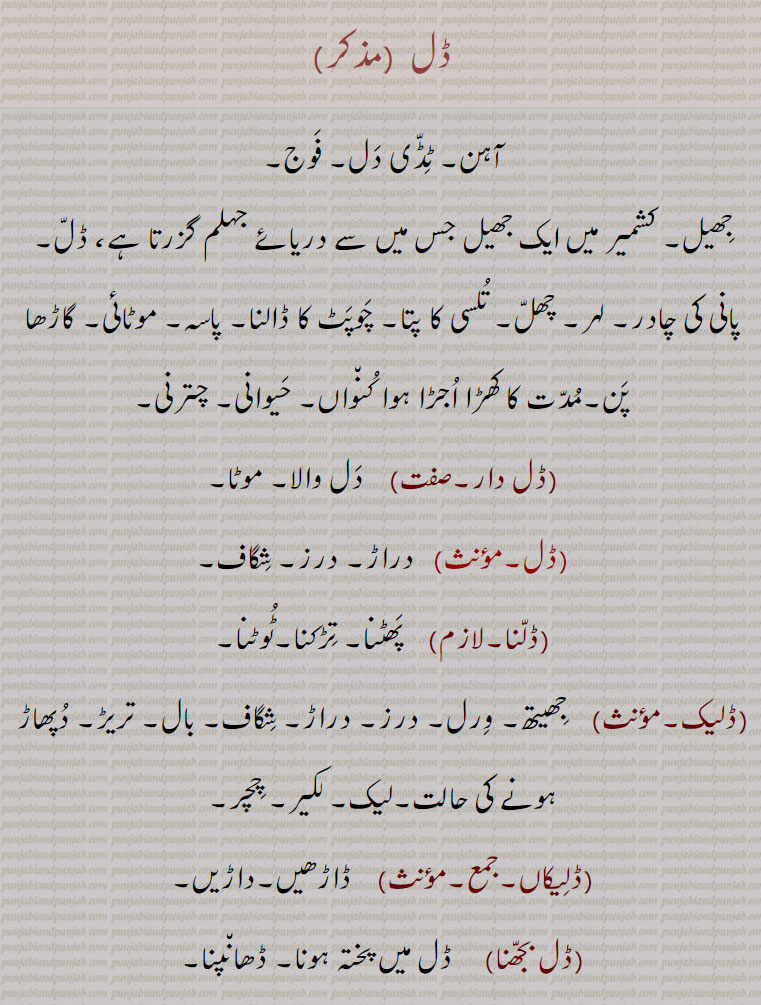 ڈل (مذکر)
آہن۔ ٹِڈّی دَل۔ فَوج۔
جِھیل۔ کشمیر میں ایک جھیل جس میں سے دریائے جہلم گزرتا ہے، ڈلّ۔
پانی کی چادر۔ لہر۔ چھلّ۔ تُلسی کا پتا۔ چَوپَٹ کا ڈالنا۔ پاسہ۔ موٹائی۔ گاڑھا
پَن۔مُدّت کا کھڑا اُجڑا ہوا کُنّواں۔ حَیوانی۔ چترنی۔
(ڈل دار۔صفت) دَل والا۔ موٹا۔
(ڈل۔مؤنث) دراڑ۔ درز۔ شِگاف۔
(ڈلّنا۔لازم) پَھٹنا۔ تِڑکنا۔ٹُوٹنا۔
(ڈلیک۔مؤنث) جِھیتھ۔ وِرل۔ درز۔ دراڑ۔ شِگاف۔ بال۔ تریڑ۔ دُپھاڑ
ہونے کی حالت۔لیک۔ لکیر۔ چِچر۔
(ڈلِیکاں۔جمع۔مؤنث) ڈاڑھیں۔داڑیں۔
(ڈل بجھّنا) ڈل میں پختہ ہونا۔ ڈھانّپنا۔